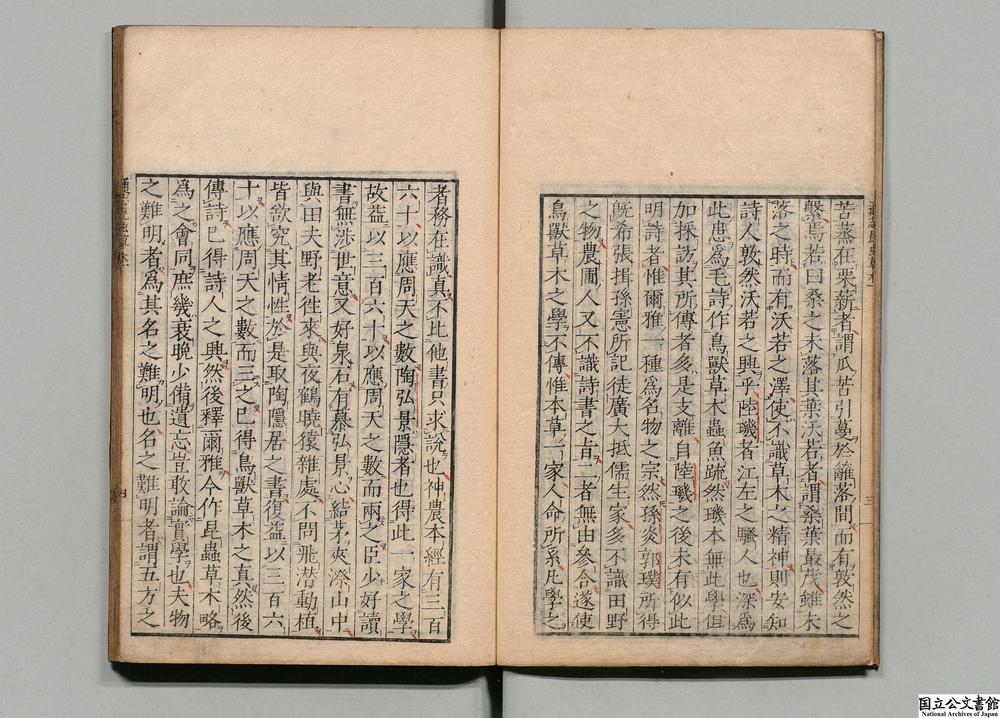 苦蒸在栗薪者謂瓜苦引蔓於籬落間而有敦然之
繫焉若曰桑之未落其葉沃若者謂桑葉最茂雖未
落之時而有沃若之澤使不識草木之精神則安知
詩人敦然沃若之興乎陸璣者江左之騷人也深爲
此患爲毛詩作鳥獸草木蟲魚疏然璣本無此學但
加採訪其所傳者多是支離自陸璣之後未有似此
明詩者惟爾雅一種爲名物之宗然孫炎郭璞所得
既希張揖孫憲所記徒廣大抵儒生家多不識田野
之物農圃人又不識詩書之旨二者無由參合遂使
鳥獸草木之學不傳惟本草一家人命所系凡學之
者務在識真不比他書只求說也神農本經有三百
六十以應周天之數陶弘景隱者也得此一家之學
故益以三百六十以應周天之數而兩之臣少好讀
書無涉世意又好泉石有慕弘景心結茅夾漈山中
與田夫野老往來與夜鶴曉猿雜處不問飛潜動植
皆欲究其情性於是取陶隱居之書復益以三百六
十以應周天之數而三之已得鳥獸草木之真然後
傳詩已得詩人之興然後釋爾雅今作昆蟲草木略
爲之會同庶幾衰晚少備遺忘豈敢論實學也夫物
之難明者爲其名之難明也名之難明者謂五方之
四
国立公文書館
National Archives of Japan